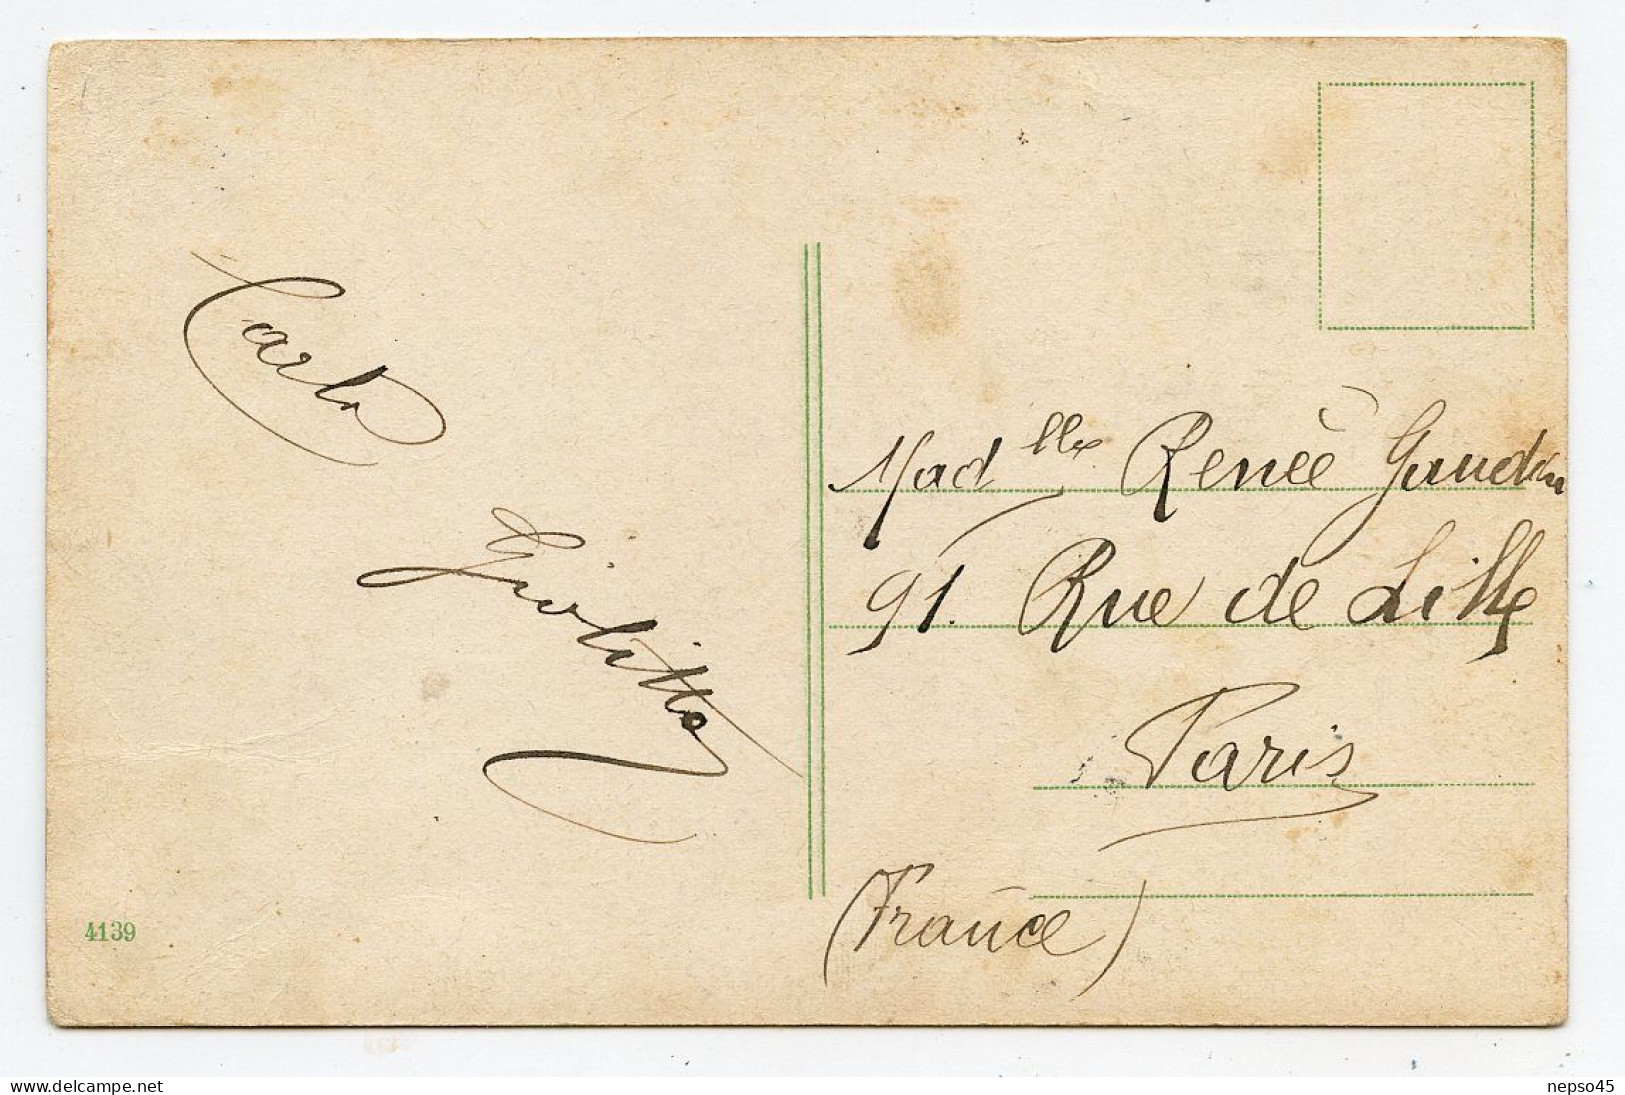 Carlo
Giolitto
Mad.lle Renée Gaudin
91. Rue de Lille
Paris
(France)
4139
delcampe.net
nepso45